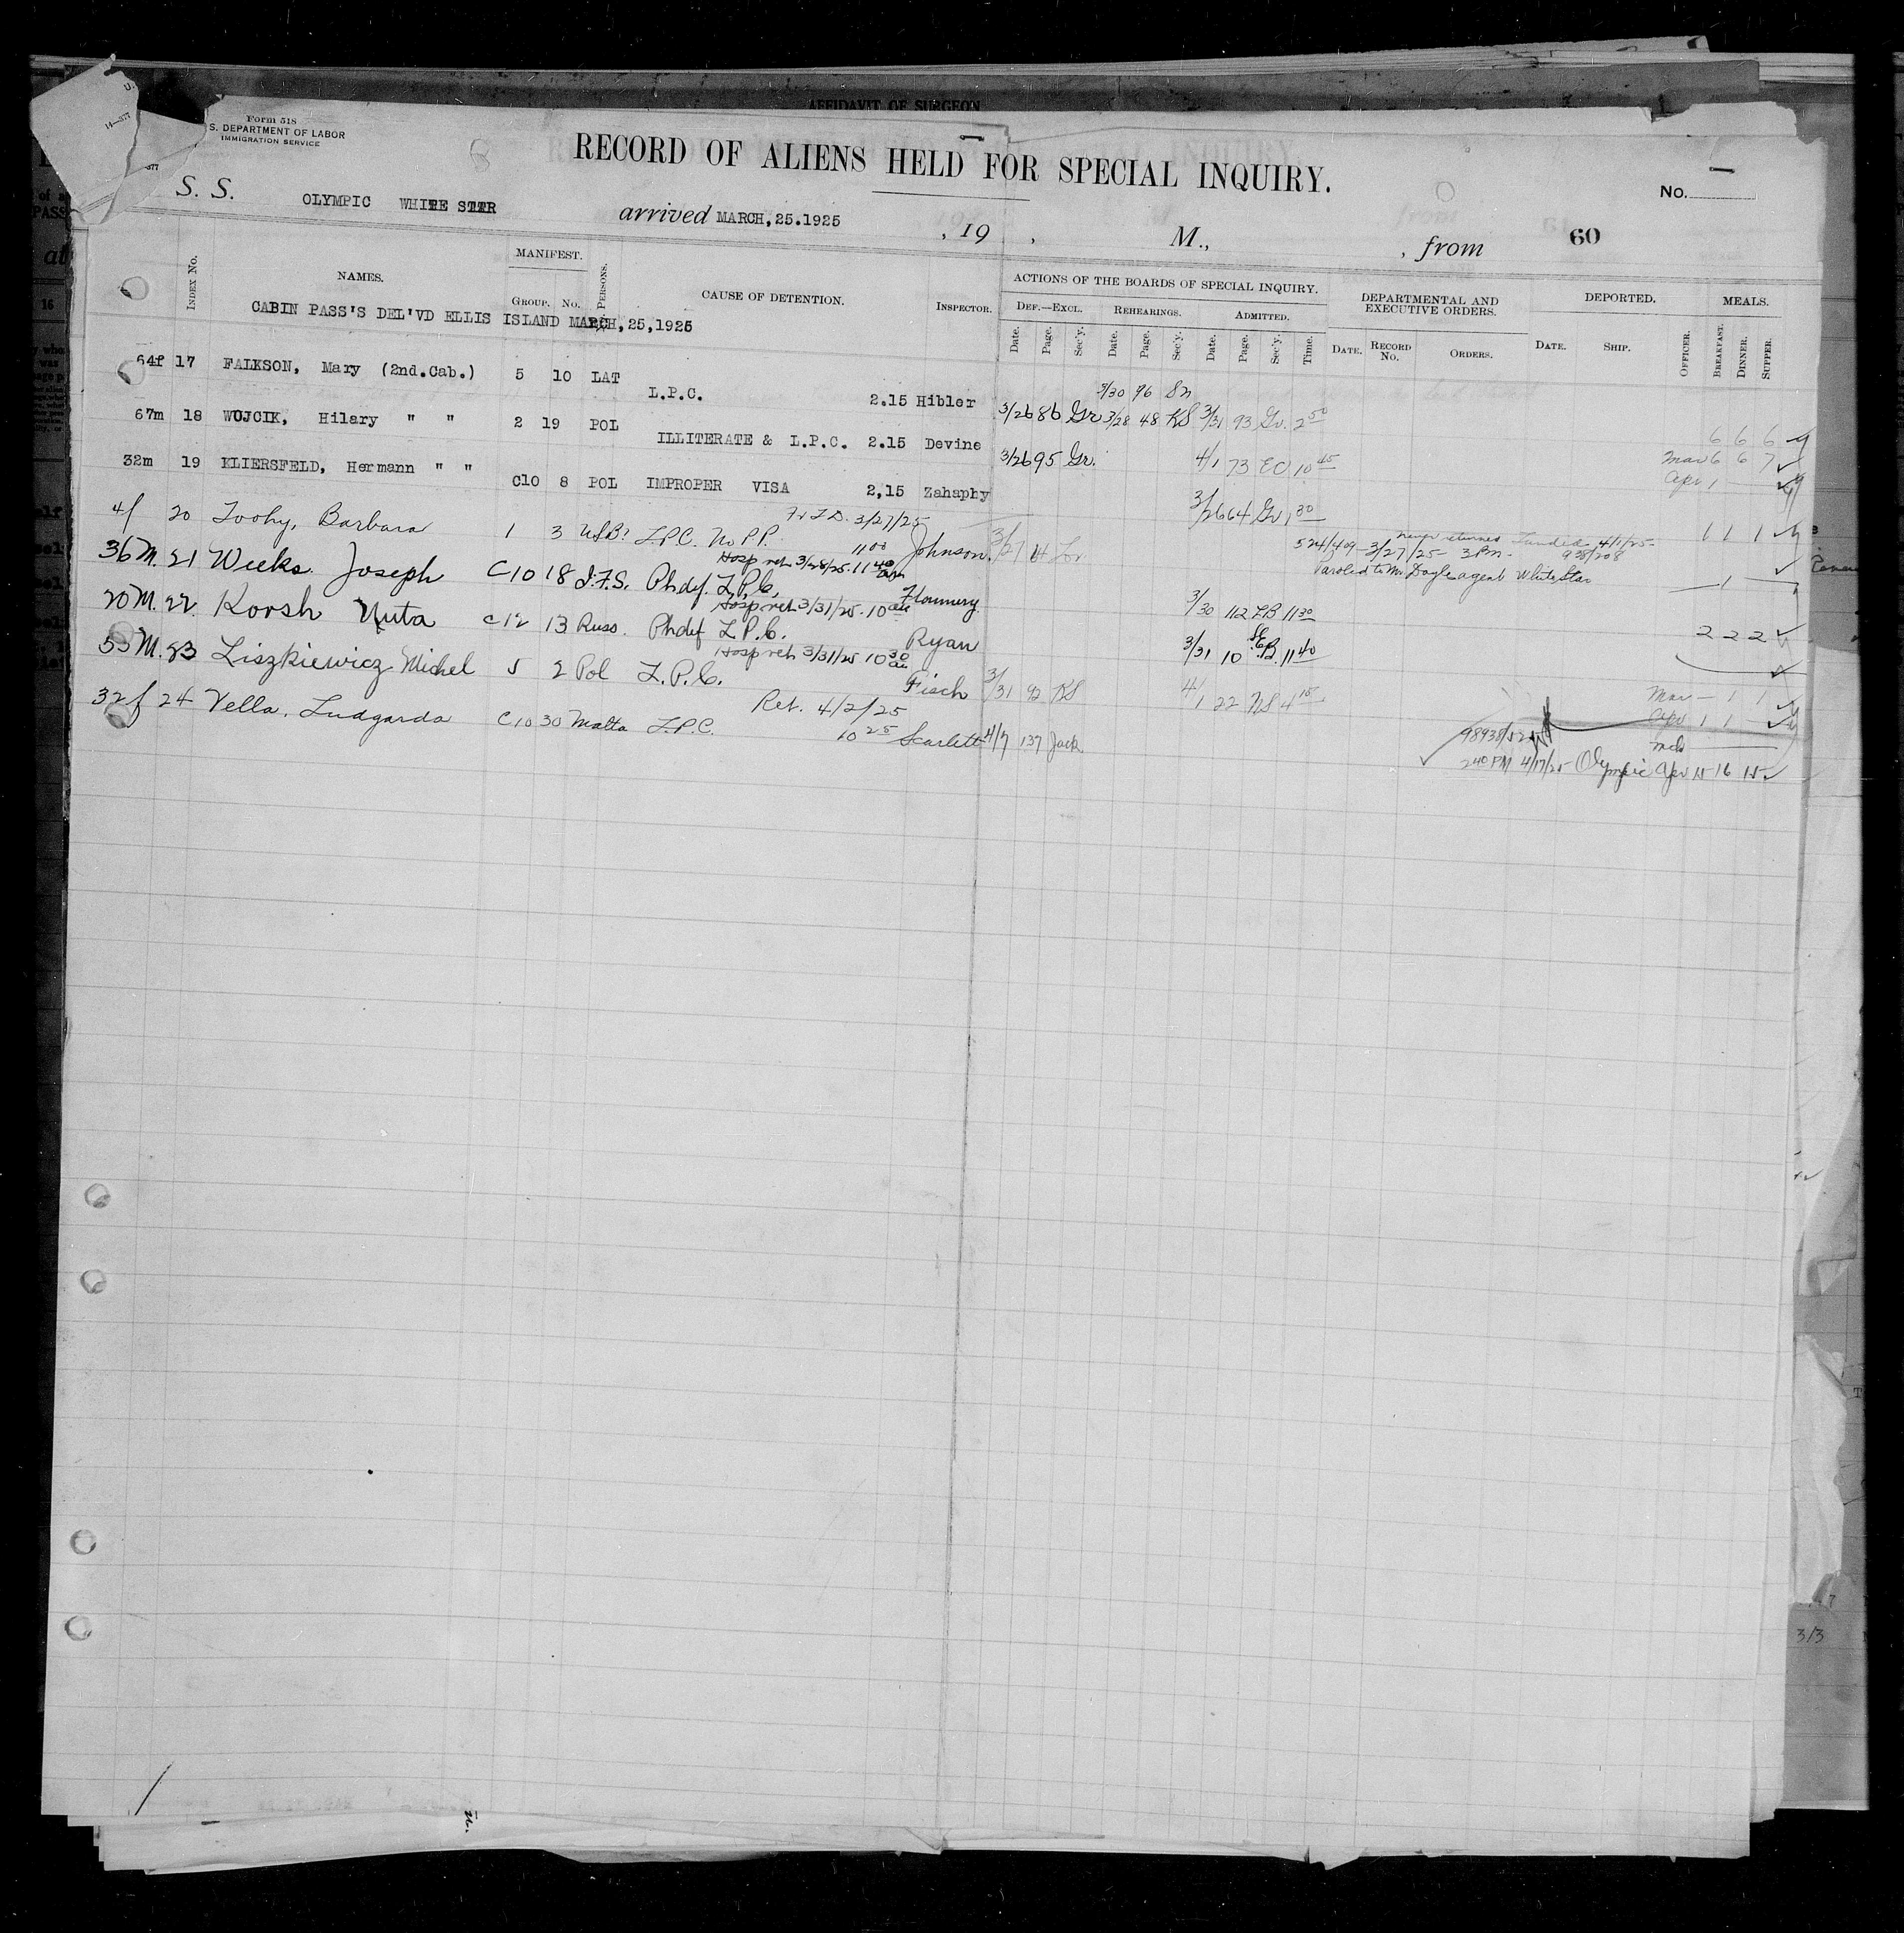 AFFIDAVIT OF SURGEON
Form 518
S. DEPARTMENT OF LABOR
IMMIGRATION SERVICE
RECORD OF ALIENS HELD FOR SPECIAL INQUIRY.
No.
S. S. OLYMPIC WHITE STAR arrived MARCH,25.1925 , 19 , M., , from 60
INDEX No. NAMES. MANIFEST. GROUP. No. PERSONS. CAUSE OF DETENTION. INSPECTOR. ACTIONS OF THE BOARDS OF SPECIAL INQUIRY. DEPARTMENTAL AND EXECUTIVE ORDERS. DEPORTED. MEALS.
DEF.—EXCL. REHEARINGS. ADMITTED.
Date. Page. Sec'y. Date. Page. Sec'y. Date. Page. Sec'y. Time. DATE. RECORD No. ORDERS. DATE. SHIP. OFFICER. BREAKFAST. DINNER. SUPPER.
CABIN PASS'S DEL'VD ELLIS ISLAND MARCH,25,1925
64f 17 FALKSON, Mary (2nd.Cab.) 5 10 LAT L.P.C. 2.15 Hibler 3/26 86 Gr 3/28 48 KS 3/31 93 Gr. 2 50
3/30 96 Sn
6 6 6
67m 18 WOJCIK, Hilary " " 2 19 POL ILLITERATE & L.P.C. 2.15 Devine 3/26 95 Gr. 4/1 73 EC 10 45
Mar 6 6 7
Apr 1
32m 19 KLIERSFELD, Hermann " " C10 8 POL IMPROPER VISA 2,15 Zahaphy 3/26 64 Gr 1 30
1 1 1
4f 20 Toohy, Barbara 1 3 L.P.C. No P.P. 3/27/25 11 00 Johnson. 3/27
never returned Landed 4/1/25
3/27/25 3 Pm. 938/208
Paroled to Mr Doyle agent White Star
36 M. 21 Weeks Joseph C10 18 Phdef. L.P.C. Hosp ret 3/28/25 11 40 am Flannery 3/30 112 EB 11 30
1
20 M. 22 Korsh Nuta C12 13 Russ. Phdef L.P.C. Hosp ret 3/31/25 10 am Ryan 3/31 10 11 40
2 2 2
53 M. 23 Liszkiewicz Michel 5 2 Pol L.P.C. Hosp ret 3/31/25 10 30 am Fisch 3/31 92 KS 4/1 22 NS 4 10
Mar — 1 1
Apr 1 1 —
32 f 24 Vella, Ludgarda C10 30 Malta L.P.C. Ret. 4/2/25 10 25 Scarlett 4/7 137 Jack
2 40 PM 4/17/25 Olympic Apr 15 16 15
3/3